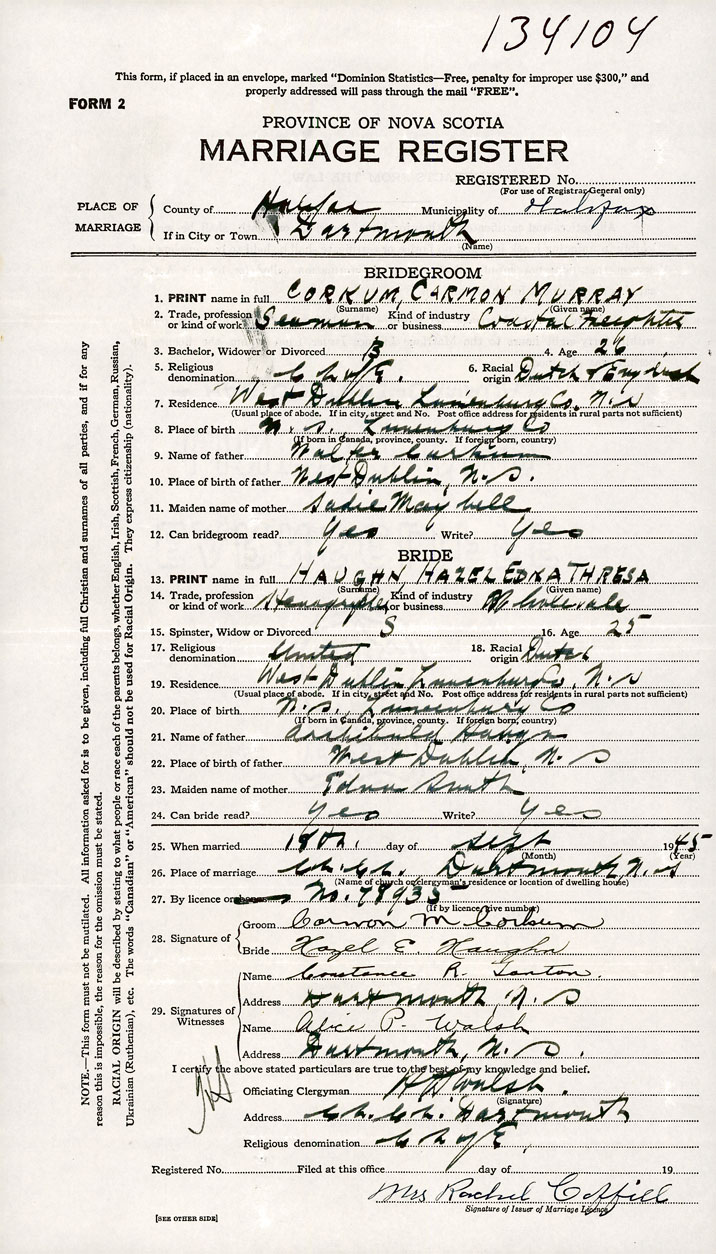 134104
This form, if placed in an envelope, marked "Dominion Statistics—Free, penalty for improper use $300," and
properly addressed will pass through the mail "FREE".
FORM 2
PROVINCE OF NOVA SCOTIA
MARRIAGE REGISTER
REGISTERED No.
(For use of Registrar-General only)
PLACE OF MARRIAGE
County of Halifax Municipality of Halifax
If in City or Town Dartmouth
(Name)
BRIDEGROOM
1. PRINT name in full CORKUM, CARMON MURRAY
(Surname) (Given name)
2. Trade, profession or kind of work Seaman Kind of industry or business Coastal Freighter
3. Bachelor, Widower or Divorced B 4. Age 26
5. Religious denomination C of E. 6. Racial origin Dutch & English
7. Residence West Dublin, Lunenburg Co. N.S
(Usual place of abode. If in city, street and No. Post office address for residents in rural parts not sufficient)
8. Place of birth N.S. Lunenburg Co
(If born in Canada, province, county. If foreign born, country)
9. Name of father Walter Corkum
10. Place of birth of father West Dublin, N.S.
11. Maiden name of mother Sadie May bell
12. Can bridegroom read? Yes Write? Yes
BRIDE
13. PRINT name in full HAUGHN HAZEL EDNA THRESA
(Surname) (Given name)
14. Trade, profession or kind of work Stenographer Kind of industry or business Wholesale
15. Spinster, Widow or Divorced S 16. Age 25
17. Religious denomination United 18. Racial origin Dutch
19. Residence West Dublin Lunenburg Co. N.S
(Usual place of abode. If in city, street and No. Post office address for residents in rural parts not sufficient)
20. Place of birth N.S. Lunenburg Co
(If born in Canada, province, county. If foreign born, country)
21. Name of father Archibald Haughn
22. Place of birth of father West Dublin, N.S
23. Maiden name of mother Edna Smith
24. Can bride read? Yes Write? Yes
25. When married 18th. day of Sept 1945
(Month) (Year)
26. Place of marriage Ch. Ch. Dartmouth N.S
(Name of church or clergyman's residence or location of dwelling house)
27. By licence or No. 78935
(If by licence, give number)
28. Signature of
Groom Carmon M Corkum
Bride Hazel E. Haughn
29. Signatures of Witnesses
Name Constance R.
Address Dartmouth, N.S
Name Alice P. Walsh
Address Dartmouth, N.S.
I certify the above stated particulars are true to the best of my knowledge and belief.
Officiating Clergyman Walsh.
(Signature)
Address Ch. Ch. Dartmouth
Religious denomination C of E
Registered No. Filed at this office day of 19
Mrs Rachel Coffill
Signature of Issuer of Marriage Licence
[SEE OTHER SIDE]
NOTE.—This form must not be mutilated. All information asked for is to be given, including full Christian and surnames of all parties, and if for any
reason this is impossible, the reason for the omission must be stated.
RACIAL ORIGIN will be described by stating to what people or race each of the parents belongs, whether English, Irish, Scottish, French, German, Russian,
Ukrainian (Ruthenian), etc. The words "Canadian" or "American" should not be used for Racial Origin. They express citizenship (nationality).